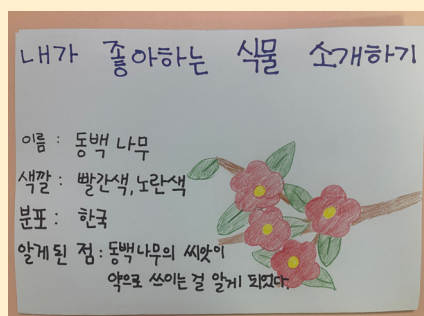 내가 좋아하는 식물 소개하기
이름 : 동백 나무
색깔 : 빨간색, 노란색
분포 : 한국
알게된 점 : 동백나무의 씨앗이
약으로 쓰이는 걸 알게 되었다.